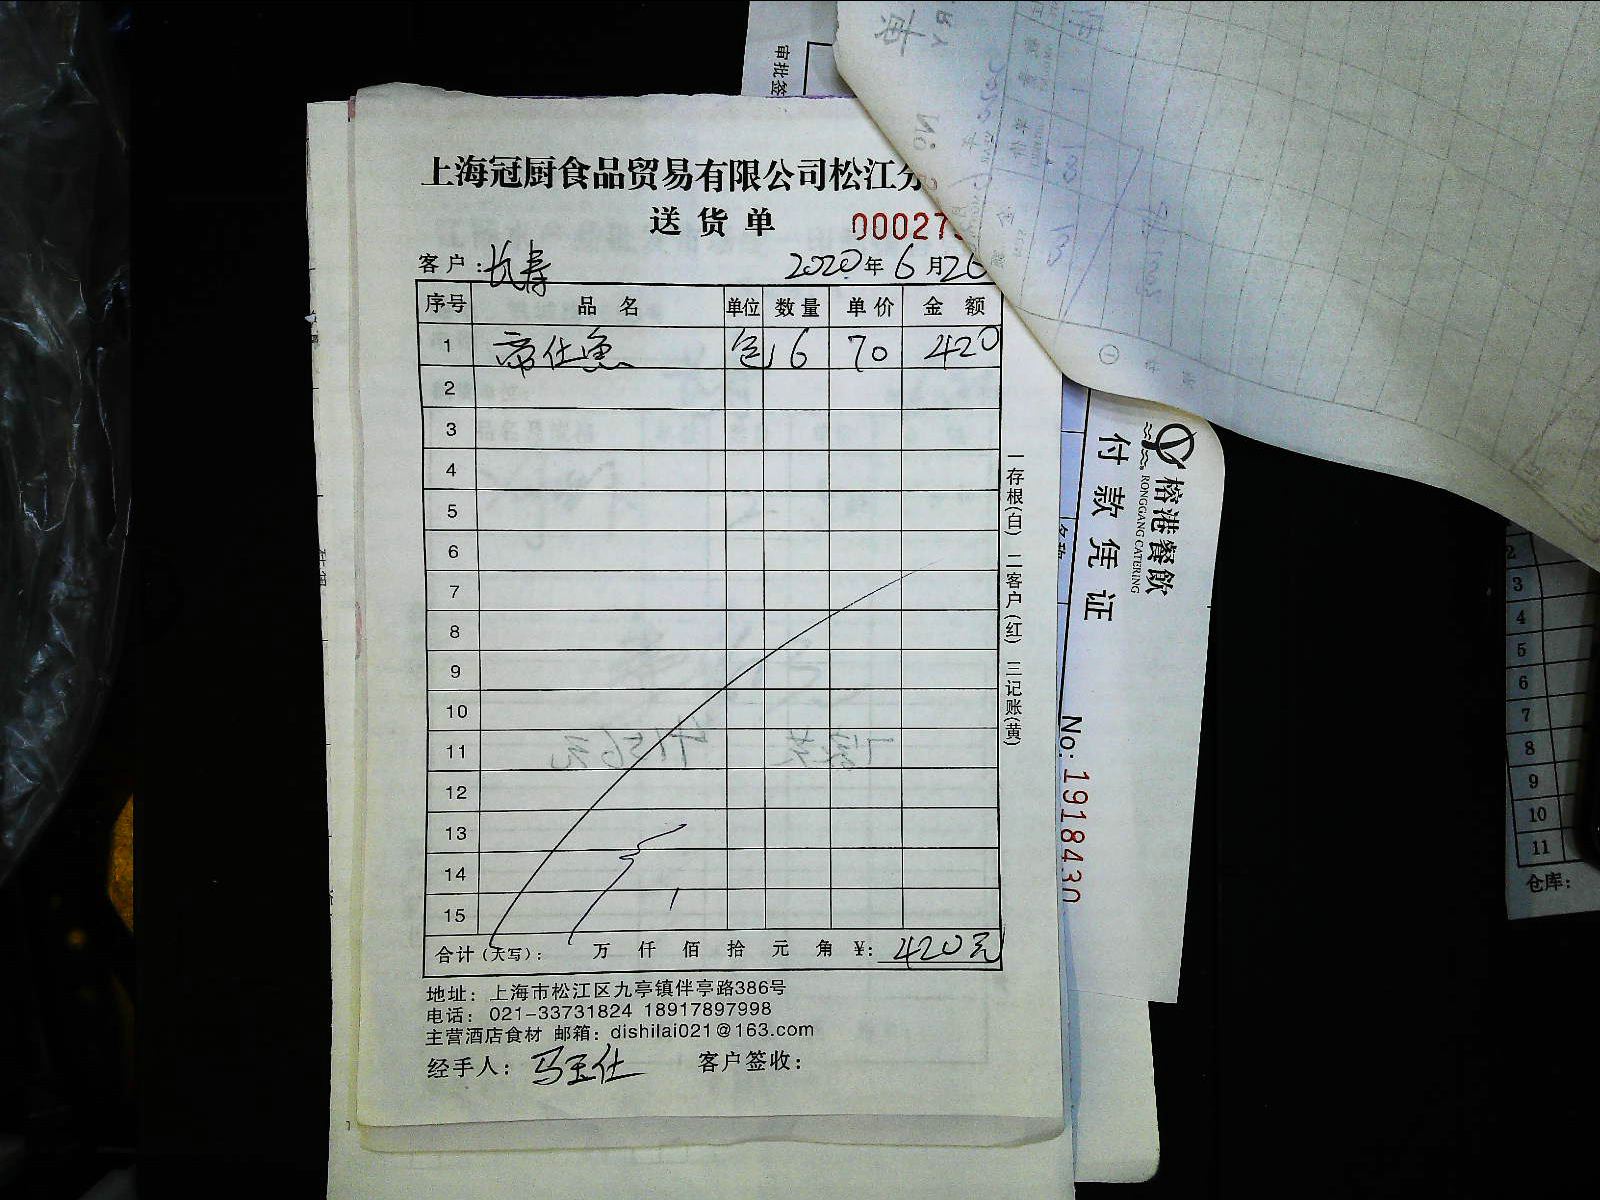 上海冠厨食品贸易有限公司松江分
送货单 00027
客户：长寿 2020年6月26
序号 品名 单位 数量 单价 金额
1 帝仕鱼 包 6 70 420
2
3
4
5
6
7
8
9
10
11
12
13
14
15
合计（大写）： 万 仟 佰 拾 元 角 ¥：420元
地址：上海市松江区九亭镇伴亭路386号
电话：021-33731824 18917897998
主营酒店食材 邮箱：dishilai021@163.com
经手人：马玉仕 客户签收：
一存根(白) 二客户(红) 三记账(黄)
审批签
榕港餐飲
RONGGANG CATERING
付款凭证
No: 1918430
2
3
4
5
6
7
8
9
10
11
仓库：